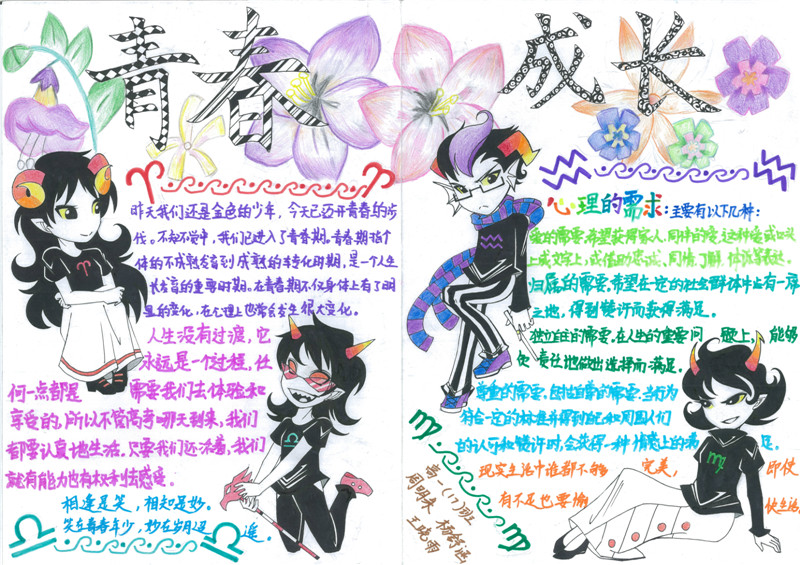 青春
成长
昨天我们还是金色的少年，今天已迈开青春的步
伐。不知不觉中，我们已进入了青春期。青春期指个
体的不成熟发育到成熟的转化时期，是一个人生
长发育的重要时期。在青春期不仅身体上有了明
显的变化，在心理上也常会发生很大变化。
人生没有过渡，它
永远是一个过程，任
何一点都是 需要我们去体验和
享受的，所以不管高考哪天到来，我们
都要认真地生活。只要我们还活着，我们
就有能力也有权利去感受。
相逢是笑，相知是妙。
笑在青春年少，妙在岁月逍 遥。
心理的需求：主要有以下几种：
爱的需要，希望获得家人、同伴的爱，这种爱或以口
上或文字上，或借助忠诚、同情、了解、体谅等表达。
归属的需要，希望在一定的社会群体中占有一席
之地，得到赞许而获得满足。
独立自主的需要，在人生的重要问 题上，能够
负责任地做出选择而满足。
尊重的需要，包括自尊的需要，当行为
符合一定的标准并得到自己和周围人们
的认可和赞许时，会获得一种情感上的满 足。
现实生活中谁都不够 完美， 即使
有不足也要愉 快生活
高一(17)班
周明央 杨舒涵
王晓雨